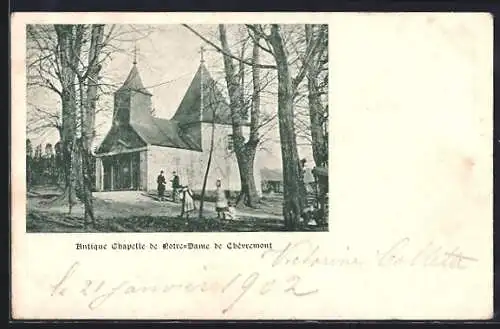 Antique Chapelle de Notre=Dame de Chèvremont
Victorine
le 21 janvier 1902